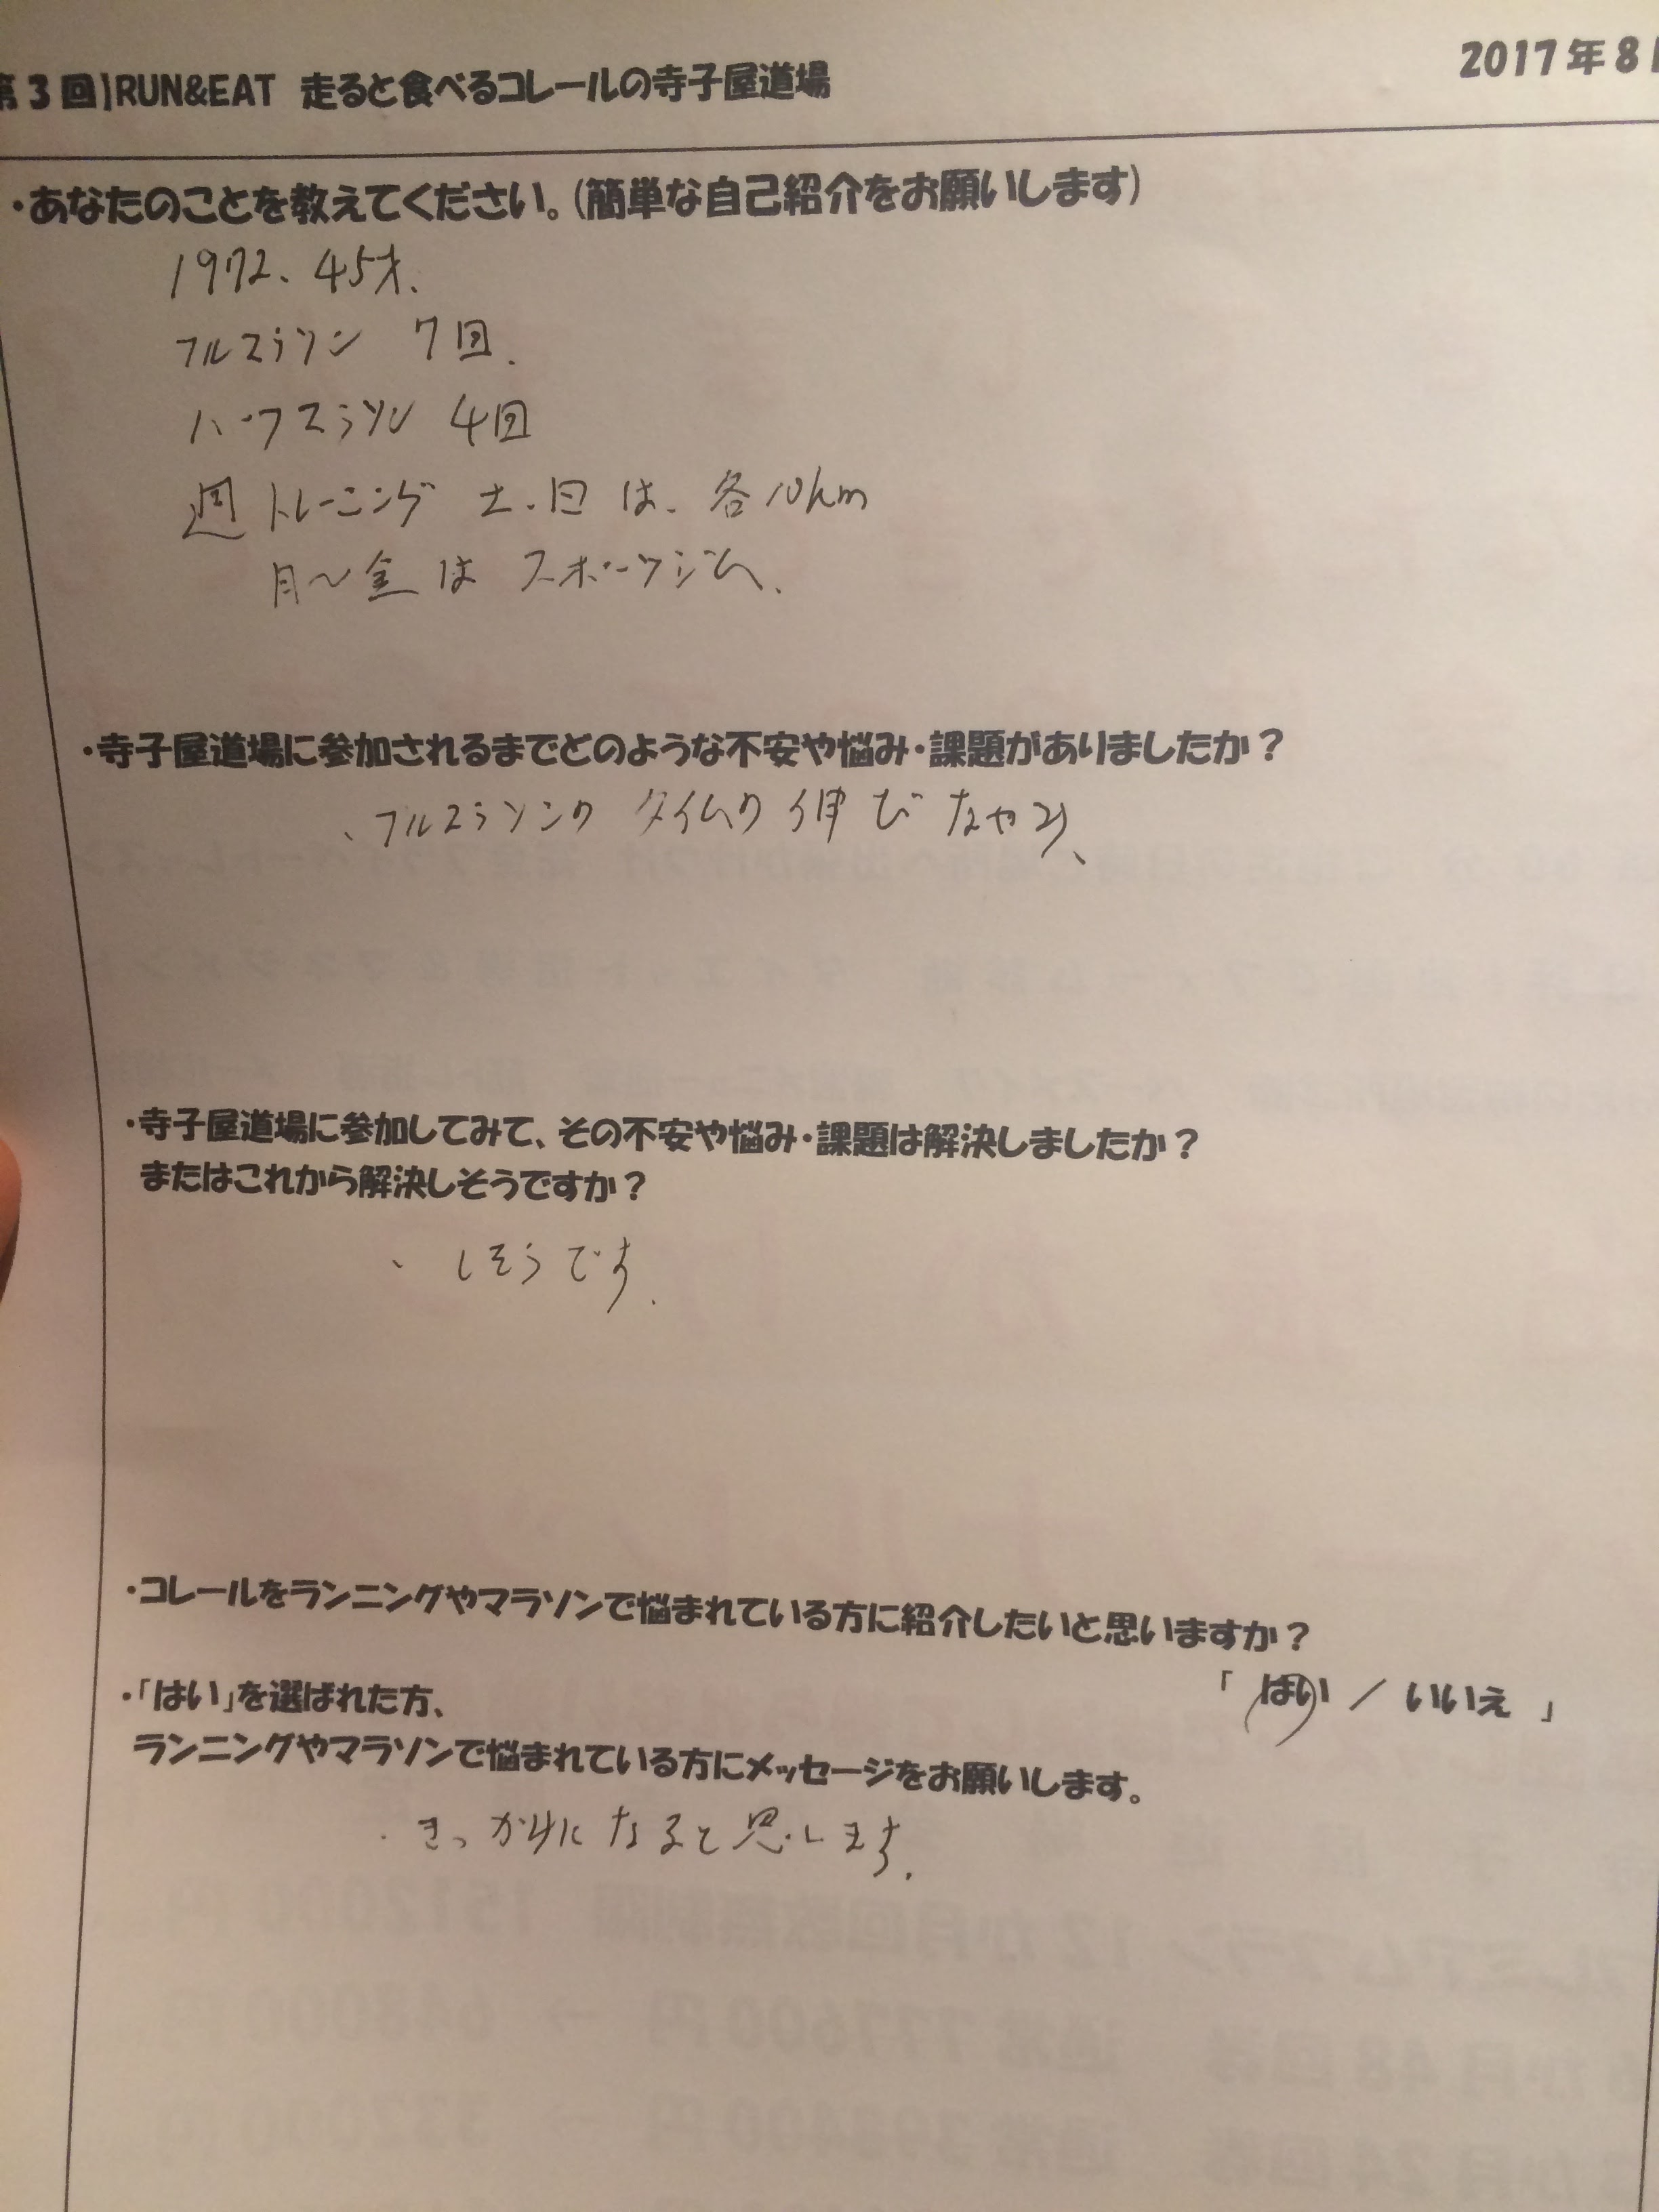 第3回]RUN&EAT 走ると食べるコレールの寺子屋道場
2017年8
・あなたのことを教えてください。(簡単な自己紹介をお願いします)
1972、45才.
フルマラソン 7回.
ハーフマラソン 4回
週トレーニング 土.日は、各10km
月〜金は スポーツジム.
・寺子屋道場に参加されるまでどのような不安や悩み・課題がありましたか?
、フルマラソンの タイムの伸びなやみ、
・寺子屋道場に参加してみて、その不安や悩み・課題は解決しましたか?
またはこれから解決しそうですか?
、しそうです.
・コレールをランニングやマラソンで悩まれている方に紹介したいと思いますか?
「 はい / いいえ 」
・「はい」を選ばれた方、
ランニングやマラソンで悩まれている方にメッセージをお願いします。
・きっかけになると思います.